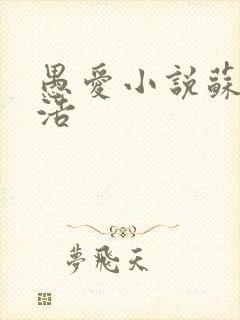 愚愛小說蘇
活
夢飛天